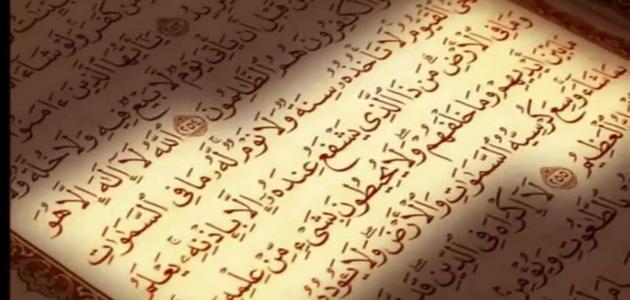 كَفَرَ وَلَوْ شَآءَ
يَٰٓأَيُّهَا ٱلَّذِينَ ءَامَنُوٓا۟
مِّن قَبْلِ أَن يَأْتِىَ يَوْمٌ لَّا بَيْعٌ فِيهِ وَلَا خُلَّةٌ وَ
وَٱلْكَٰفِرُونَ هُمُ ٱلظَّٰلِمُونَ ٢٥٤ ٱللَّهُ لَآ إِلَٰهَ إِلَّا هُوَ
ٱلْقَيُّومُ لَا تَأْخُذُهُۥ سِنَةٌ وَلَا نَوْمٌ لَّهُۥ مَا فِى ٱلسَّمَٰوَٰتِ
وَمَا فِى ٱلْأَرْضِ مَن ذَا ٱلَّذِى يَشْفَعُ عِندَهُۥٓ إِلَّا بِإِذْنِهِۦ يَعْلَمُ
مَا بَيْنَ أَيْدِيهِمْ وَمَا خَلْفَهُمْ وَلَا يُحِيطُونَ بِشَىْءٍ مِّنْ عِلْمِهِۦٓ
شَآءَ وَسِعَ كُرْسِيُّهُ ٱلسَّمَٰوَٰتِ وَٱلْأَرْضَ وَلَا يَـُٔودُهُۥ
ٱلْعَظِيمُ ٢٥٥ لَآ إِكْرَاهَ فِى ٱلدِّينِ قَد
بِٱلطَّٰغُوتِ وَيُؤْمِنۢ